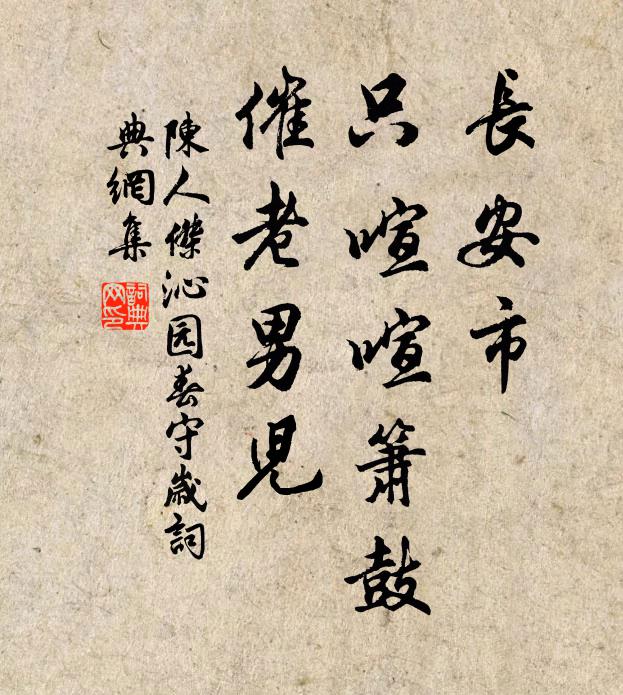 長安市
只喧喧簫鼓
催老男兒
陳人傑沁园春守歲詞
典網集
詞典网印